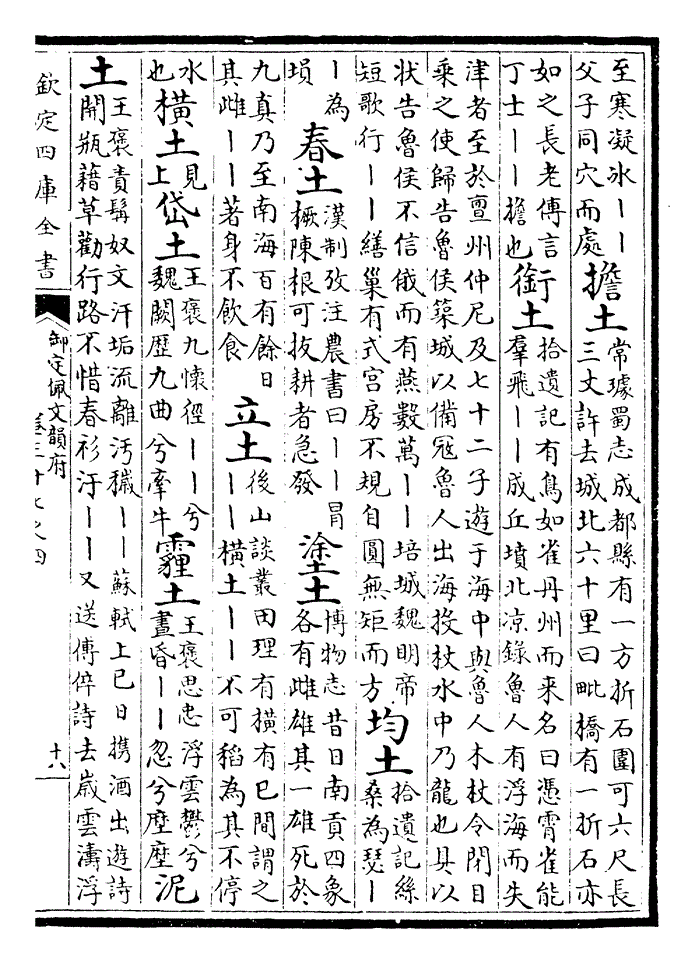 至寒凝氷丨丨
父子同穴而處
擔土
常璩蜀志成都縣有一方折石圍可六尺長
三丈許去城北六十里曰毗橋有一折石亦
如之長老傳言
丁士丨丨擔也
銜土
拾遺記有鳥如雀丹州而来名曰憑霄雀能
羣飛丨丨成丘墳北凉錄魯人有浮海而失
津者至於亶州仲尼及七十二子遊于海中與魯人木杖令閉目
乘之使歸告魯侯築城以備冦魯人出海投杖水中乃龍也具以
状告魯侯不信俄而有燕數萬丨丨培城魏明帝
短歌行丨丨繕巢有式宫房不規自圓無矩而方
均土
拾遺記絲
桑為瑟丨
丨為
塤
春土
漢制攷注農書曰丨丨冐
橛陳根可抜耕者急發
塗土
博物志昔日南貢四象
各有雌雄其一雄死於
九真乃至南海百有餘日
其雌丨丨著身不飲食
立土
後山談叢田理有横有巳間謂之
丨丨横土丨丨不可稻為其不停
水
也
横土
見
上
岱土
王褒九懷徑丨丨兮
魏闕歴九曲兮牽牛
霾土
王褒思忠浮雲鬱兮
晝昏丨丨忽兮塺塺
泥
土
王褒責髯奴文汗垢流離汚穢丨丨蘇軾上巳日携酒出遊詩
開瓶藉草勸行路不惜春衫汙丨丨又送傅倅詩去嵗雲濤浮
欽定四庫全書
御定佩文韻府
卷三十七之四
十八